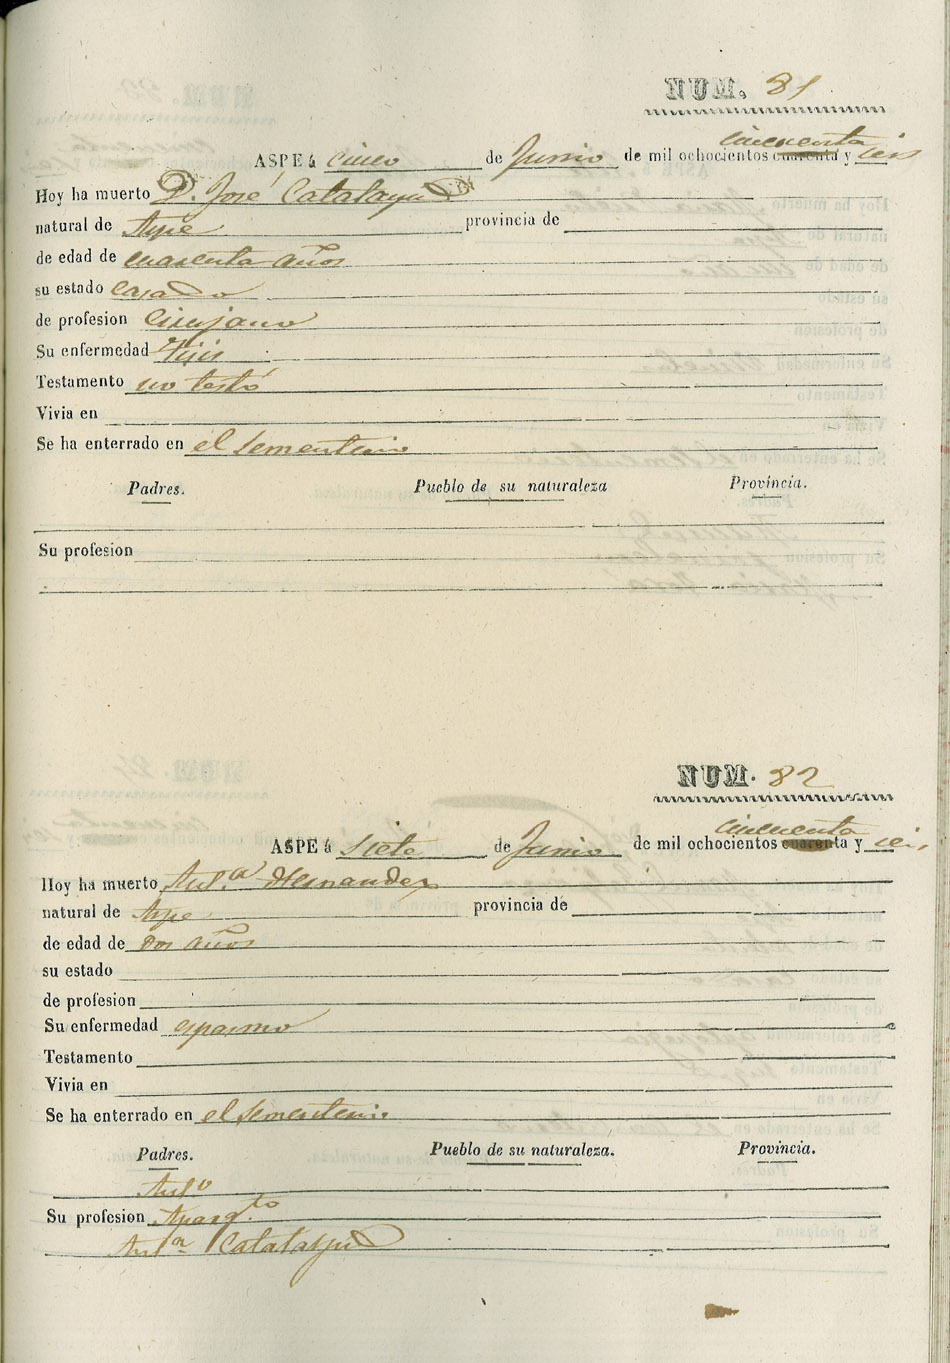 NUM. 81
ASPE á cinco de Junio de mil ochocientos cincuenta cuarenta y seis
Hoy ha muerto D. José Catalayud
natural de Aspe provincia de
de edad de cuarenta años
su estado casado
de profesion Cirujano
Su enfermedad Tijis
Testamento no testó
Vivia en
Se ha enterrado en el sementerio
Padres. Pueblo de su naturaleza Provincia.
Su profesion
NUM. 82
ASPE á siete de Junio de mil ochocientos cincuenta cuarenta y seis
Hoy ha muerto Ant.ª Hernandez
natural de Aspe provincia de
de edad de dos años
su estado
de profesion
Su enfermedad espasmo
Testamento
Vivia en
Se ha enterrado en el sementerio
Padres. Pueblo de su naturaleza. Provincia.
Ant.º
Su profesion
Ant.ª Catalayud